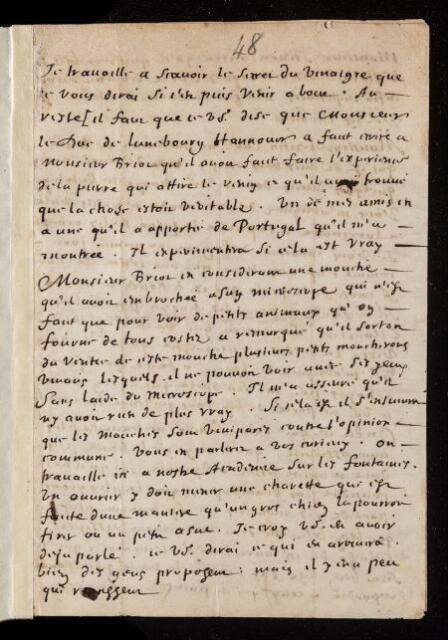 48
Je travaille a scavoir le secret du vinaigre que
je vous dirai si j'en puis venir a bout. Au
reste il faut que je vs. dise que Monsieur
le Duc de Lunebourg Hannover a fait écrire a
Monsieur Briot qu'il avoit fait faire l'experience
de la pierre qui attire le venin et qu'il avoit trouvé
que la chose estoit veritable. Un de mes amis en
a une qu'il a apporté de Portugal qu'il m'a
montrée. Il experimentera si cela est vray
Monsieur Briot en considerant une mouche
qu'il avoit embrochée a son microscope qui n'est
fait que pour voir de petits animaux qu'on
tourne de tous costez a remarqué qu'il sortoit
du ventre de cette mouche plusieurs petits moucherons
vivans lesquels il ne pouvoit voir avec ses yeux
sans laide du microscope. Il m'a asseuré qu'il
ny avoit rien de plus vray. Si cela est il s'ensuivra
que les mouches sont vivipares contre l'opinion
commune. Vous en parlerez a vos curieux. On
travaille ici a nostre Academie sur les fontaines.
Un ouvrier y doit mener une charette qui est
faite dune maniere qu'un gros chien la pourroit
tirer ou un petit asne. Je croy vs. en avoir
deja parlé. Je vs. dirai ce qui en arrivera.
bien des gens proposent: mais il y en a peu
qui reussissent